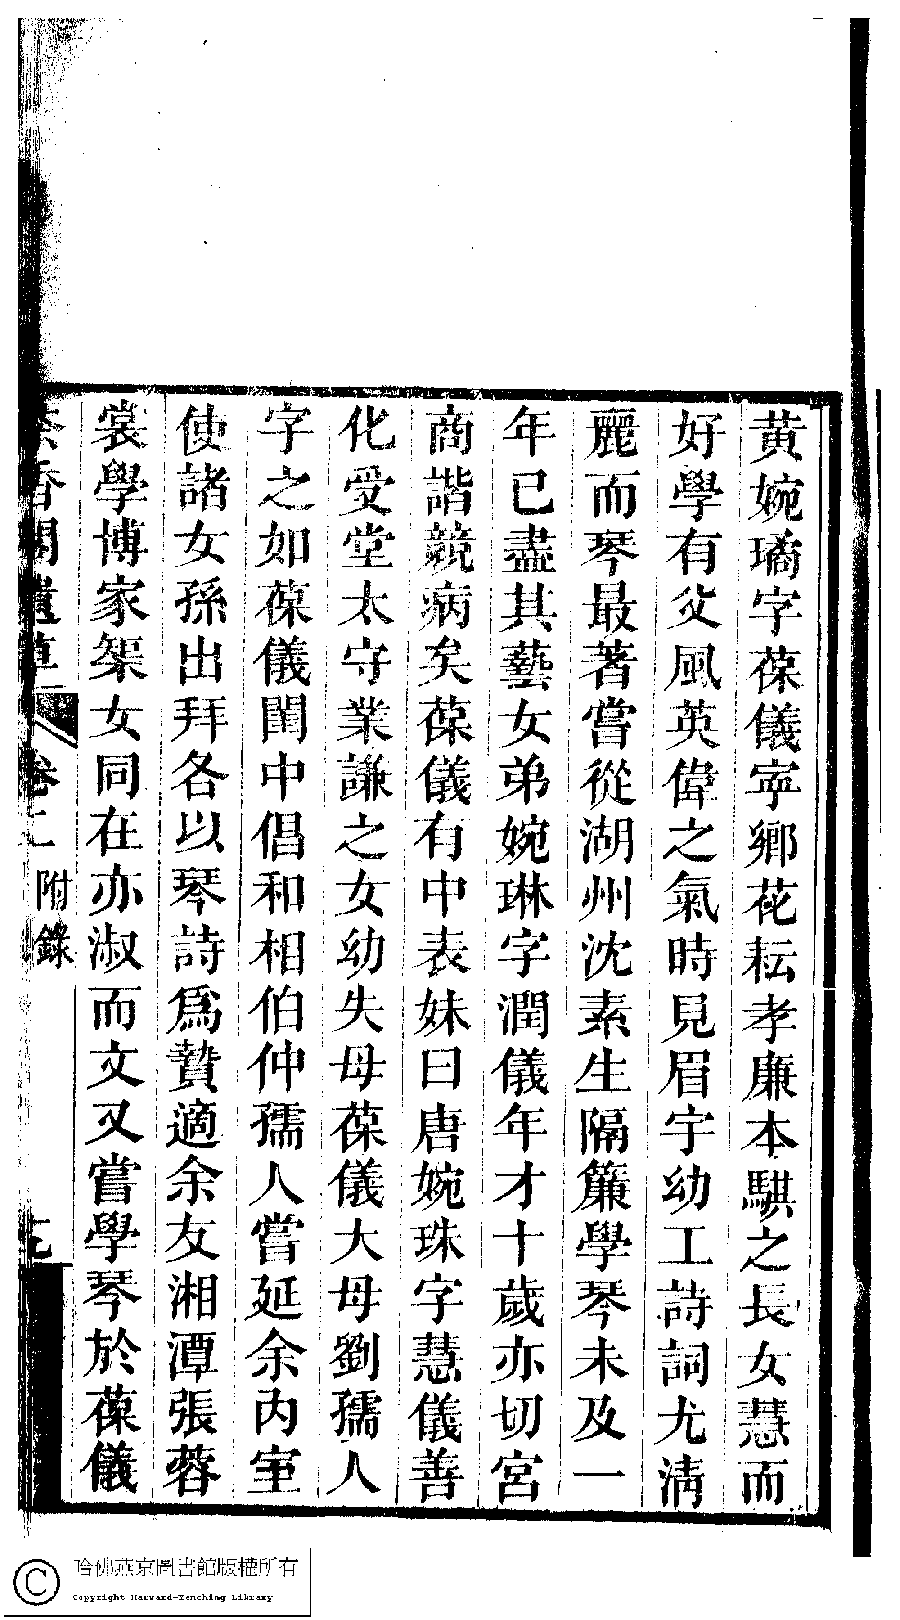 黃婉璚字葆儀寧鄉花耘孝廉本騏之長女慧而
好學有父風英偉之氣時見眉宇幼工詩詞尤淸
麗而琴最著嘗從湖州沈素生隔簾學琴未及一
年已盡其藝女弟婉琳字潤儀年才十歲亦切宮
商諧競病矣葆儀有中表妹曰唐婉珠字慧儀善
化受堂太守業謙之女幼失母葆儀大母劉孺人
字之如葆儀閨中倡和相伯仲孺人嘗延余內室
使諸女孫出拜各以琴詩爲贄適余友湘潭張蓉
裳學博家榘女同在亦淑而文又嘗學琴於葆儀
香閣遺草 卷二 附錄
哈佛燕京圖書館版權所有
Copyright Harvard-Yenching Library